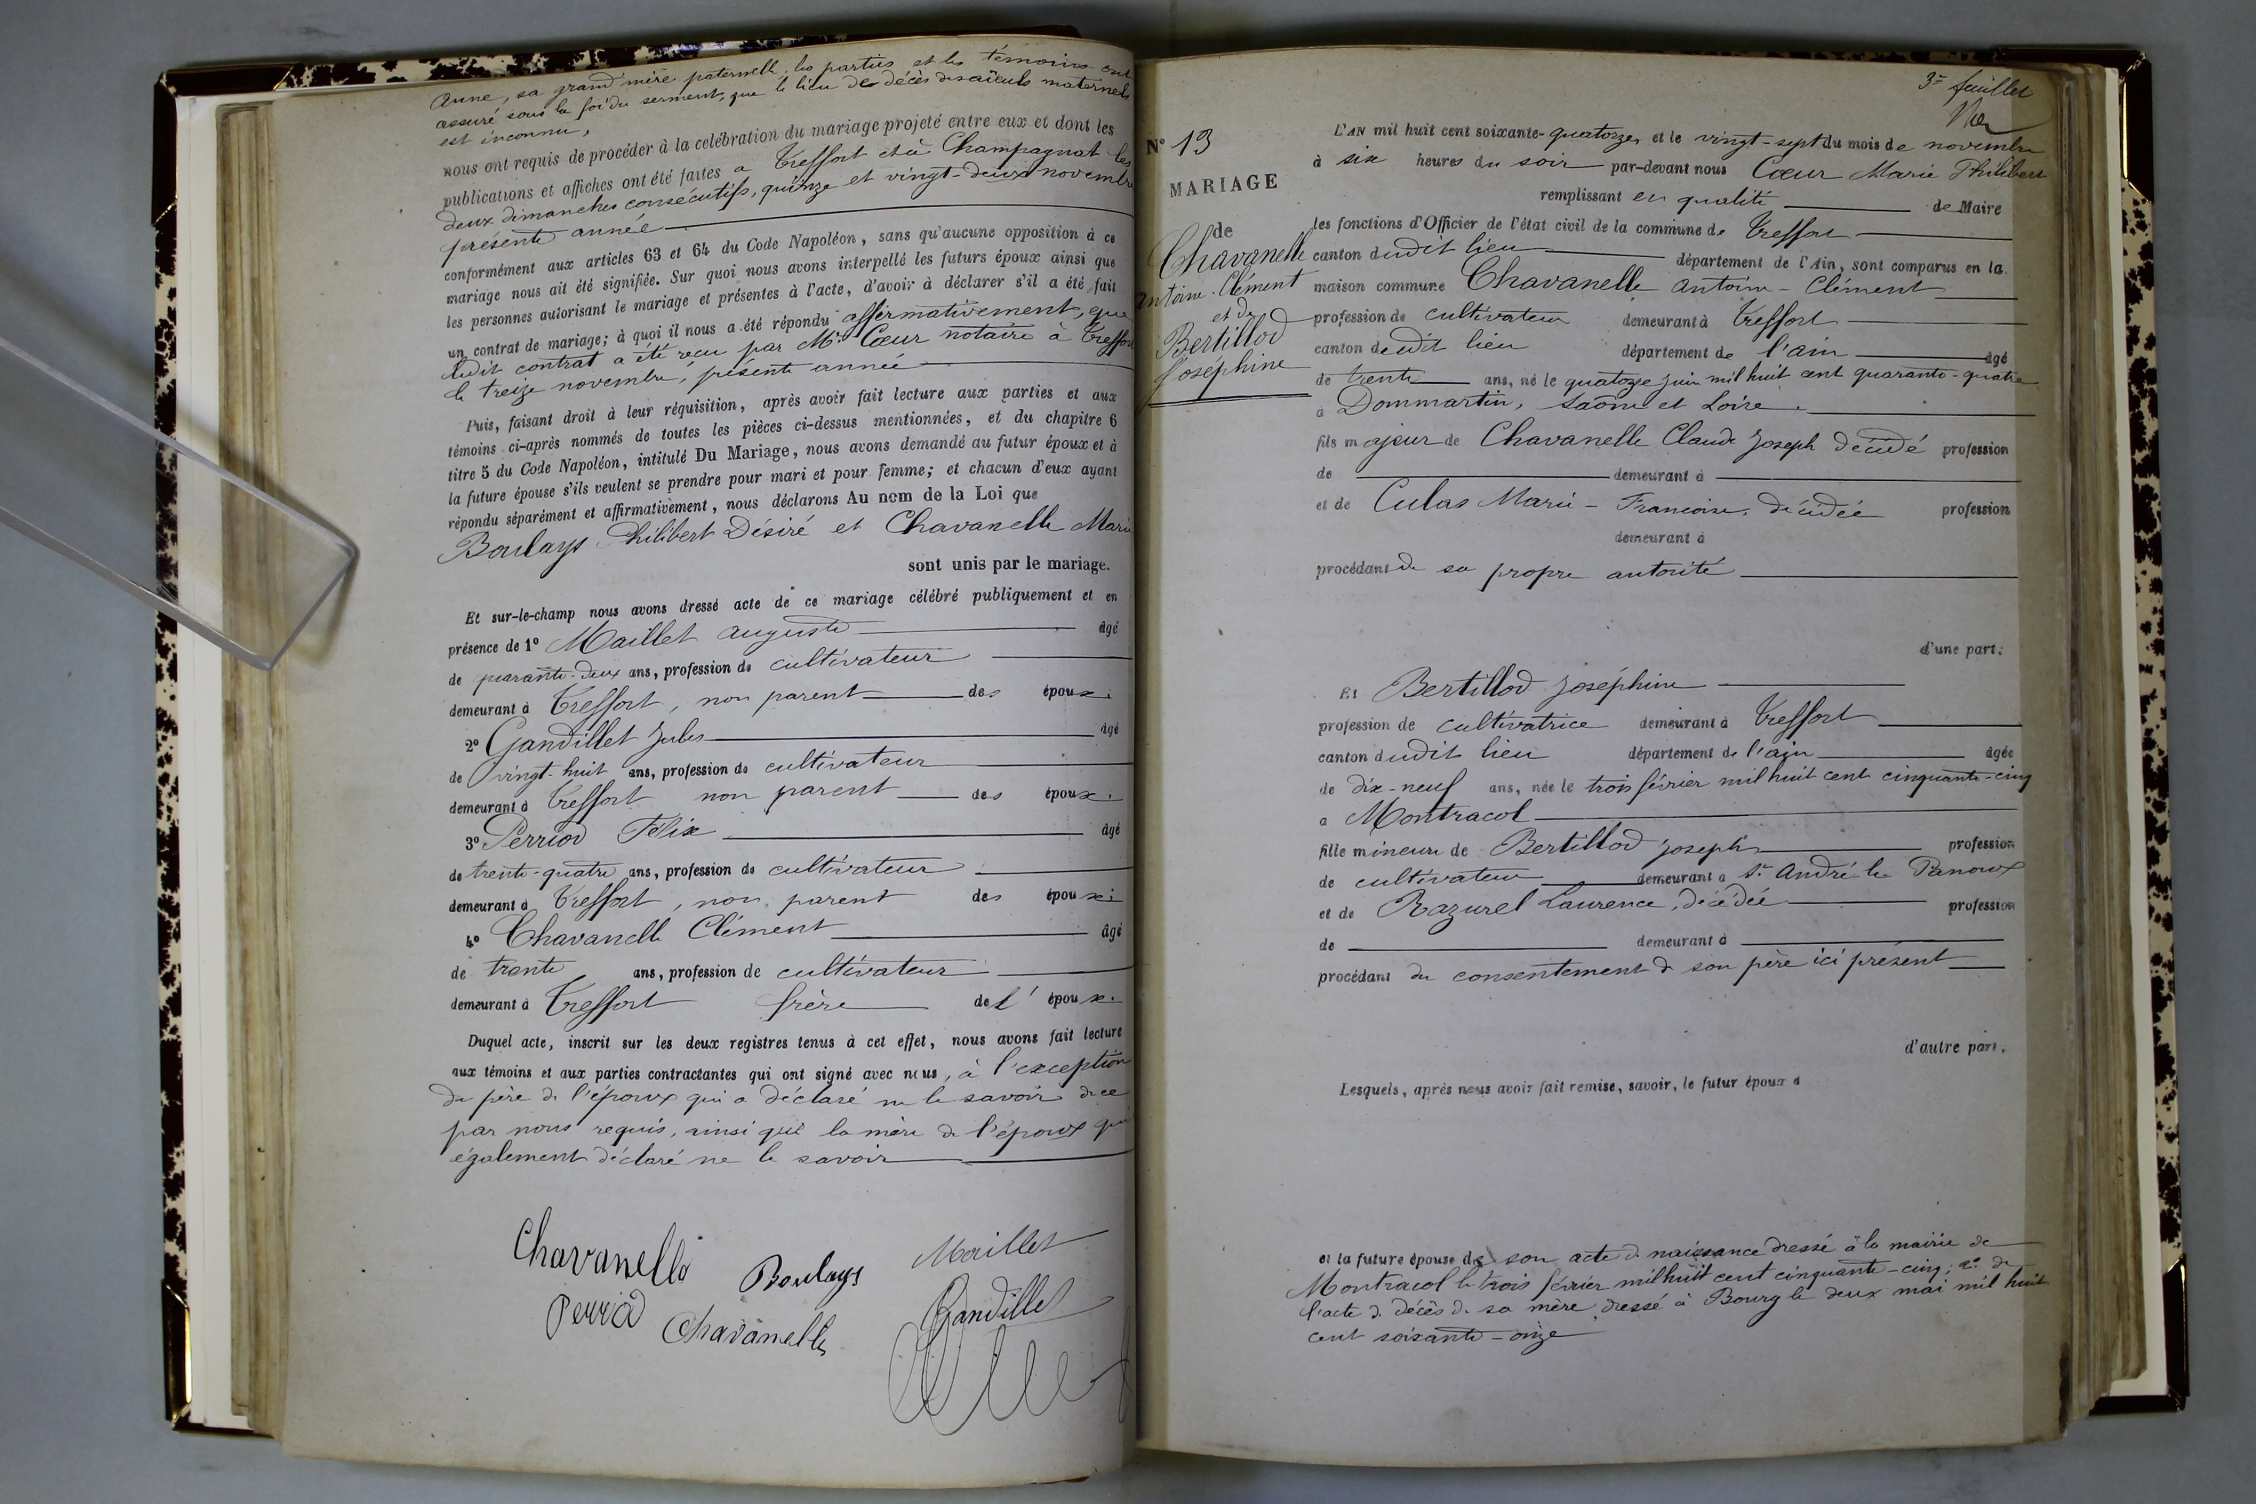 Anne, sa grand'mère paternelle; les parties et les témoins ont
assuré sous la foi du serment, que le lieu de décès des aïeuls maternels
est inconnu,
nous ont requis de procéder à la celébration du mariage projeté entre eux et dont les
publications et affiches ont été faites a Treffort et à Champagnat les
deux dimanches consécutifs, quinze et vingt-deux novembre
présente année
conformément aux articles 63 et 64 du Code Napoléon, sans qu'aucune opposition à ce
mariage nous ait été signifiée. Sur quoi nous avons interpellé les futurs époux ainsi que
les personnes autorisant le mariage et présentes à l'acte, d'avoir à déclarer s'il a été fait
un contrat de mariage; à quoi il nous a été répondu affermativement, que
ledit contrat a été reçu par Me Cœur notaire à Treffort
le treize novembre, présente année
Puis, faisant droit à leur réquisition, après avoir fait lecture aux parties et aux
témoins ci-après nommés de toutes les pièces ci-dessus mentionnées, et du chapitre 6
titre 5 du Code Napoléon, intitulé Du Mariage, nous avons demandé au futur époux et à
la future épouse s'ils veulent se prendre pour mari et pour femme; et chacun d'eux ayant
répondu séparément et affirmativement, nous déclarons Au nom de la Loi que
Boulays Philibert Désiré et Chavanelle Marie
sont unis par le mariage.
Et sur-le-champ nous avons dressé acte de ce mariage célébré publiquement et en
présence de 1° Maillet Auguste âgé
de quarante-deux ans, profession de cultivateur
demeurant à Treffort, non parent des époux;
2° Gandillet Jules âgé
de vingt-huit ans, profession de cultivateur
demeurant à Treffort non parent des époux;
3° Perriod Félix âgé
de trente-quatre ans, profession de cultivateur
demeurant à Treffort, non parent des époux;
4° Chavanelle Clément âgé
de trente ans, profession de cultivateur
demeurant à Treffort frère de l' époux.
Duquel acte, inscrit sur les deux registres tenus à cet effet, nous avons fait lecture
aux témoins et aux parties contractantes qui ont signé avec nous, à l'exception
du père de l'époux qui a déclaré ne le savoir de ce
par nous requis, ainsi que la mère de l'époux qui
également déclaré ne le savoir
Chavanelle Boulays Maillet
Perriod Chavanelle Gandillet
3e feuillet
N° 13
MARIAGE
de
Chavanelle
Antoine-Clément
et de
Bertillod
Joséphine
L'AN mil huit cent soixante-quatorze, et le vingt-sept du mois de novembre
à six heures du soir par-devant nous Cœur Marie Philibert
remplissant en qualité de Maire
les fonctions d'Officier de l'état civil de la commune de Treffort
canton dudit lieu département de l'Ain, sont comparus en la
maison commune Chavanelle Antoine-Clément
profession de cultivateur demeurant à Treffort
canton dudit lieu département de l'Ain âgé
de trente ans, né le quatorze juin mil huit cent quarante-quatre
à Dommartin, Saône et Loire.
fils majeur de Chavanelle Claude Joseph décédé profession
de demeurant à
et de Culas Marie-Françoise, décédée profession
demeurant à
procédant de sa propre autorité
d'une part;
Et Bertillod Joséphine
profession de cultivatrice demeurant à Treffort
canton dudit lieu département de l'Ain âgée
de dix-neuf ans, née le trois février mil huit cent cinquante-cinq
a Montracol
fille mineure de Bertillod Joseph profession
de cultivateur demeurant a St André le Panoux
et de Razurel Laurence, décédée profession
de demeurant à
procédant du consentement de son père ici présent
d'autre part.
Lesquels, après nous avoir fait remise, savoir, le futur époux d
et la future épouse de son acte de naissance dressé à la mairie de
Montracol le trois février mil huit cent cinquante-cinq; 2° de
l'acte de décès de sa mère dressé à Bourg le deux mai mil huit
cent soixante-onze